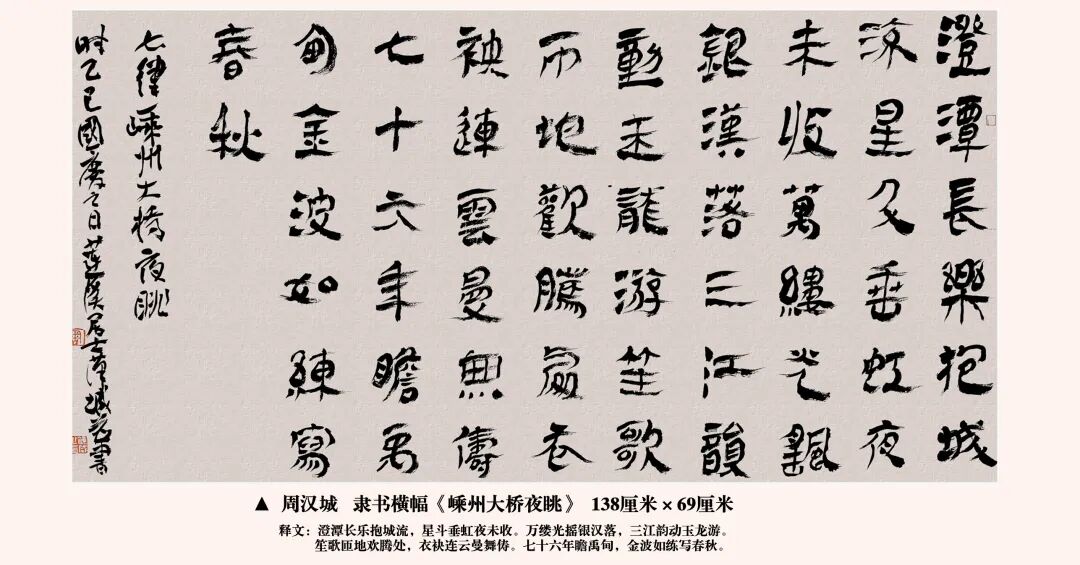 澄潭長樂抱城
流星斗垂虹夜
未收萬縷光颻
銀漢落三江韻
動玉龍游笙歌
帀地歡騰處衣
袂連雲曼舞儔
七十六年瞻禹
甸金波如練寫
春秋
七律嵊州大橋夜眺
時乙巳國慶之日蓮溪居士漢城并書
▲ 周汉城 隶书横幅《嵊州大桥夜眺》 138厘米×69厘米
释文：澄潭长乐抱城流，星斗垂虹夜未收。万缕光摇银汉落，三江韵动玉龙游。
笙歌匝地欢腾处，衣袂连云曼舞俦。七十六年瞻禹甸，金波如练写春秋。